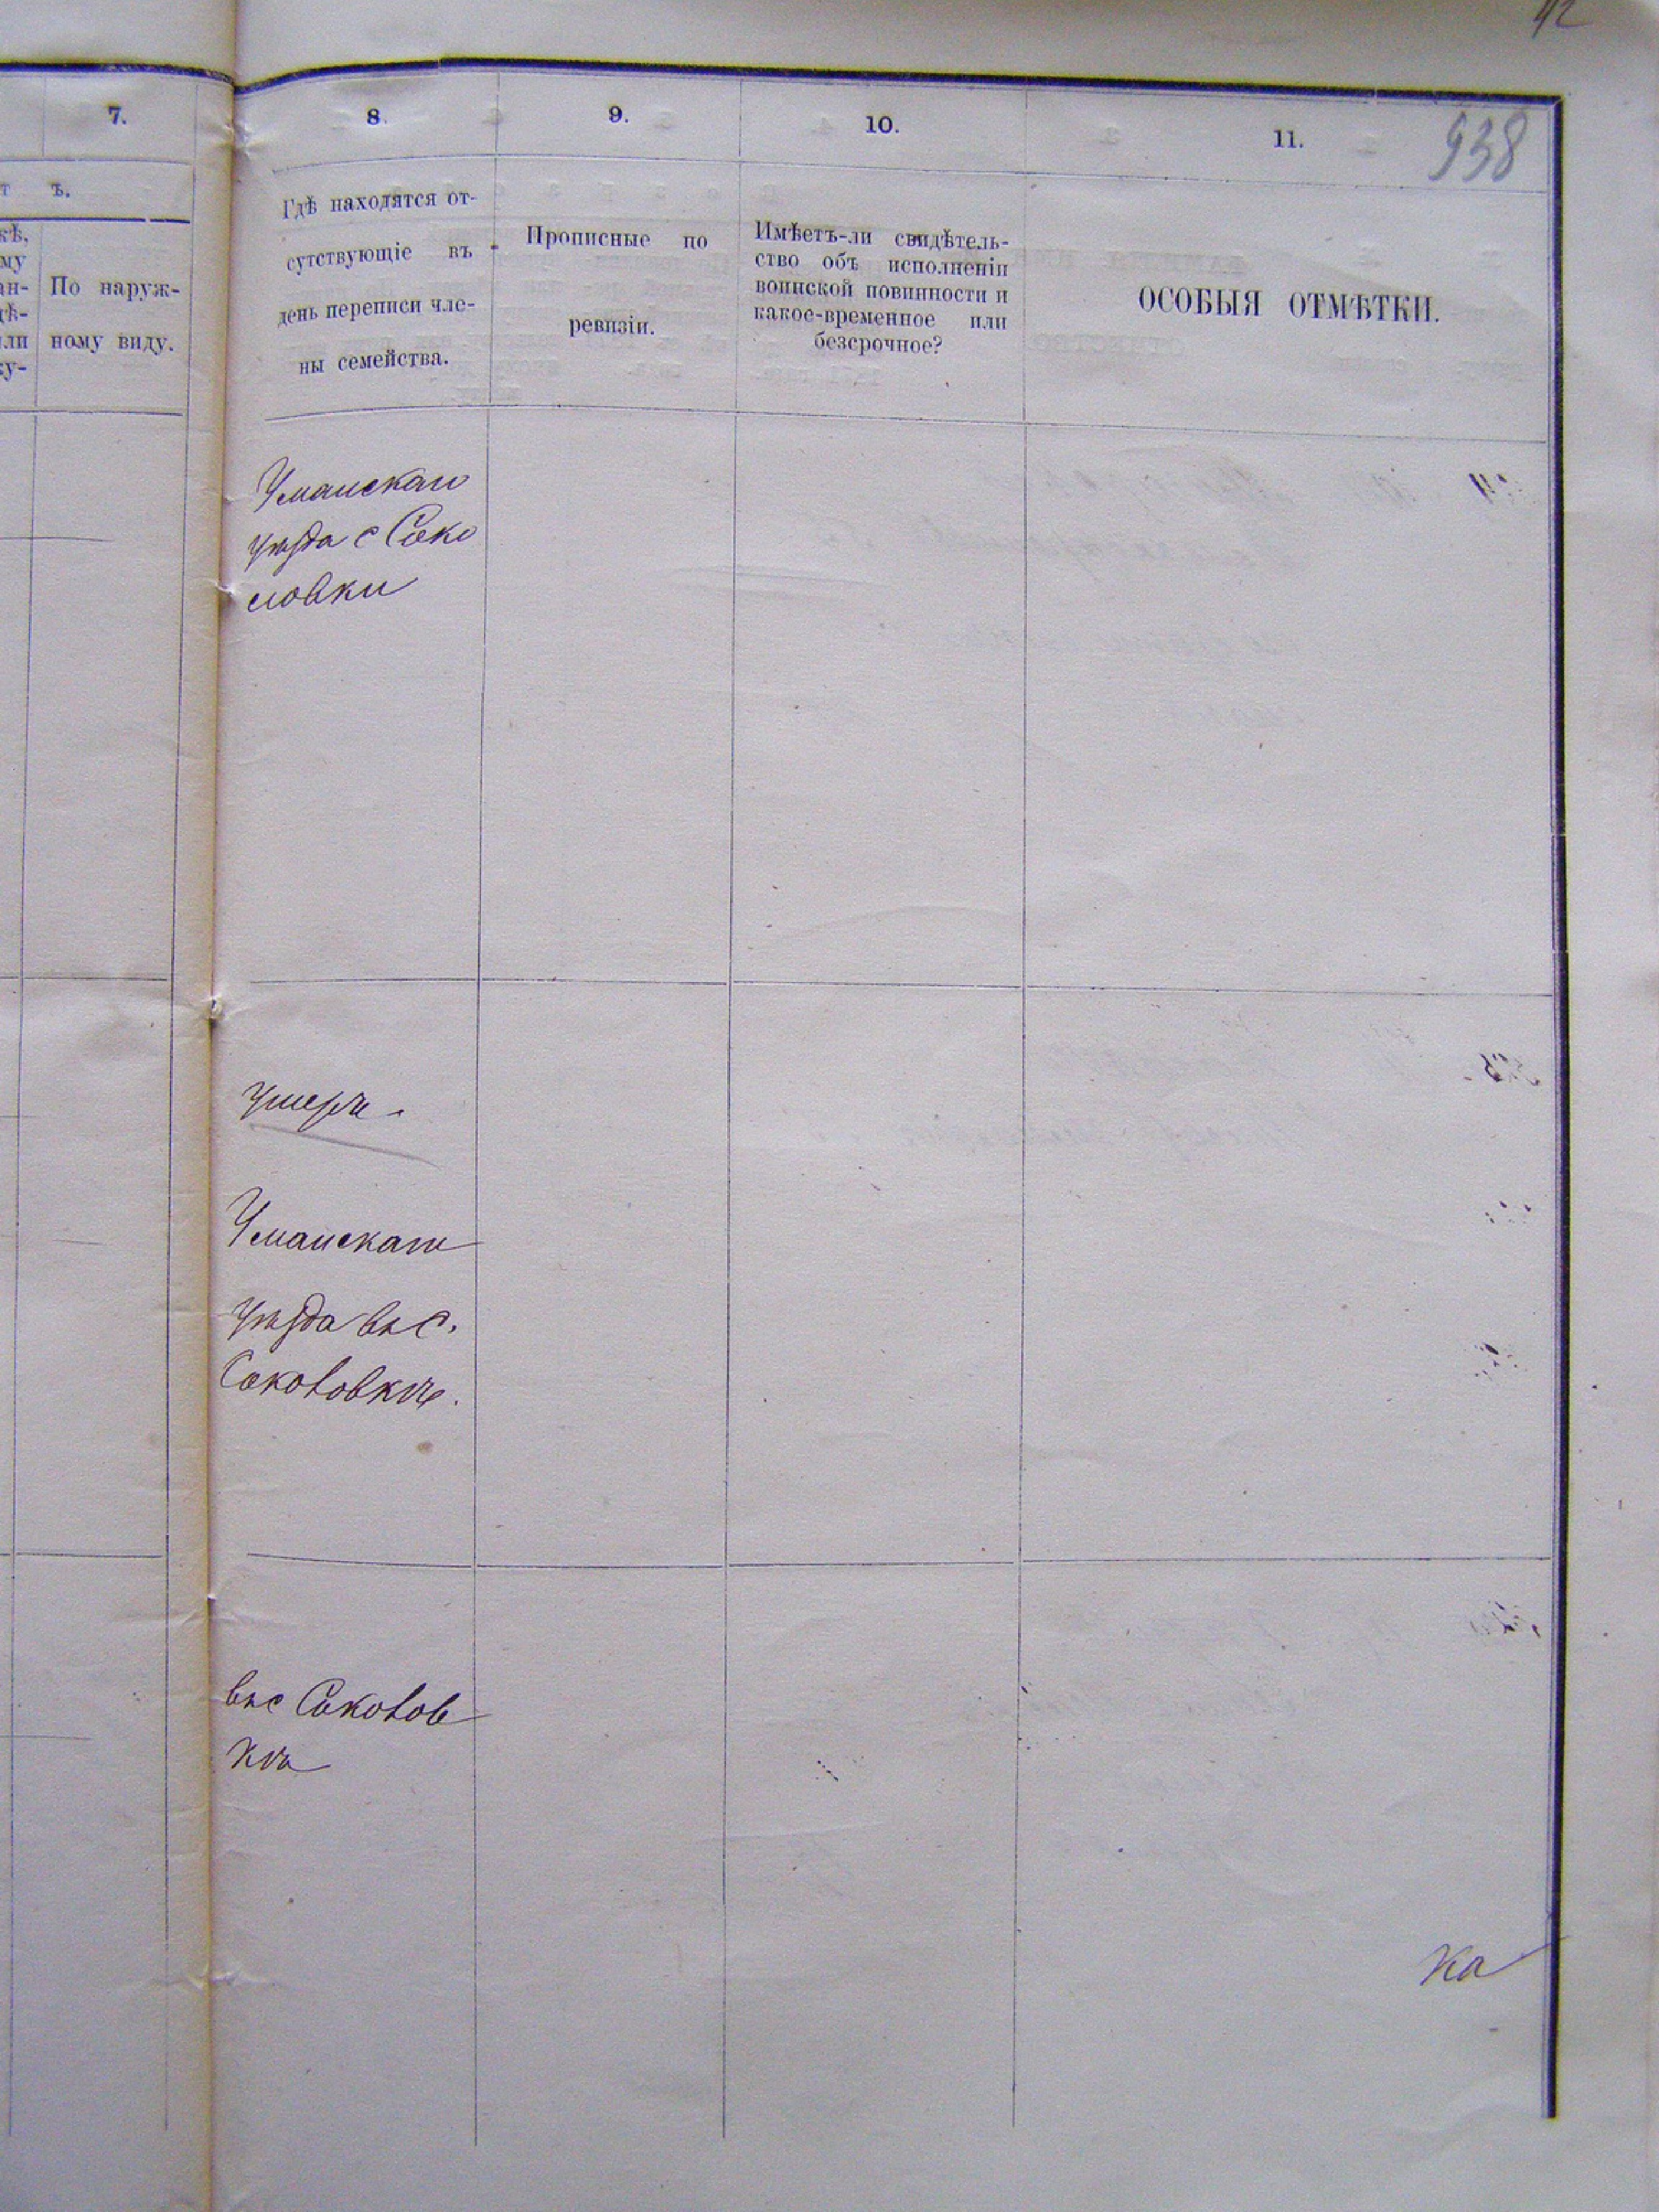 42
938
7.
8.
9.
10.
11.
т ъ.
По наруж-
ному виду.
Гдѣ находятся от-
сутствующіе въ
день переписи чле-
ны семейства.
Прописные по
ревизіи.
Имѣетъ-ли свидѣтель-
ство объ исполненіи
воинской повинности и
какое-временное или
безсрочное?
ОСОБЫЯ ОТМѢТКИ.
Уманскаго
уѣзда с Соко
ловки
умеръ
Уманскаго
уѣзда въ с.
Соколовкѣ.
въ с Соколов
кѣ
ка